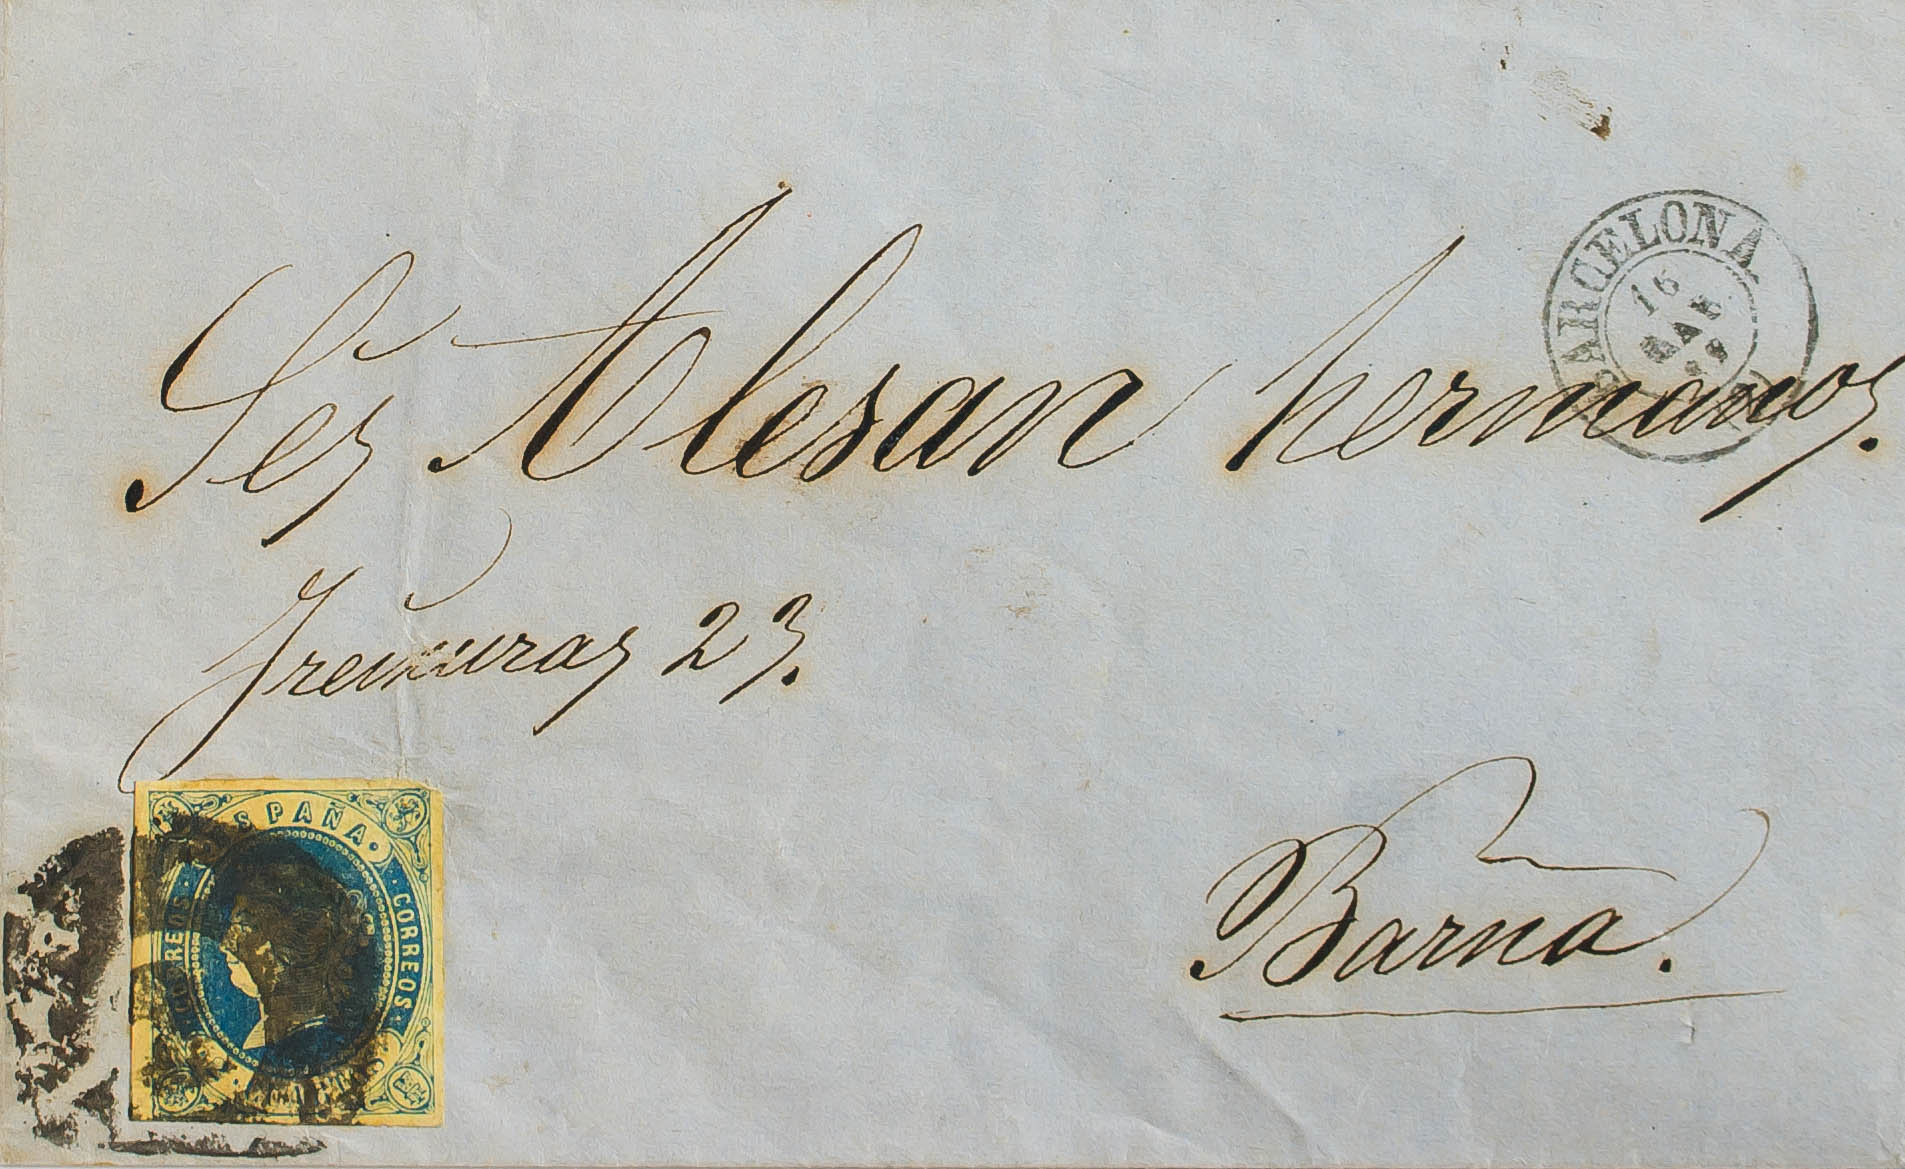 BARCELONA
16
MAR
Sres Alesan hermanos.
23.
ESPAÑA
CORREOS CORREOS
Barna.